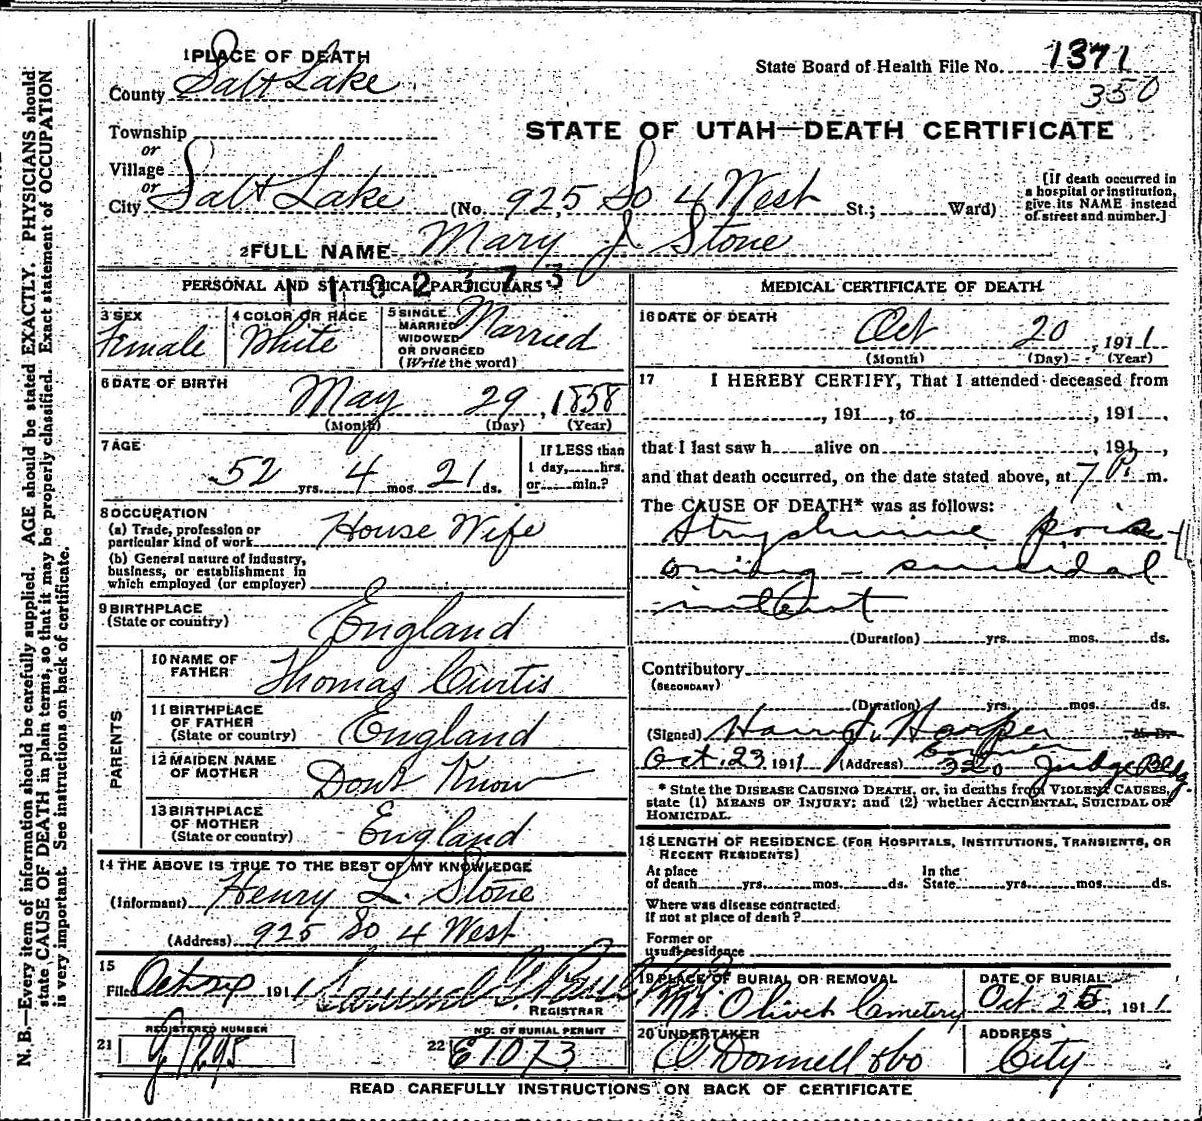 1 PLACE OF DEATH
County Salt Lake
State Board of Health File No. 1371
350
Township
or
Village
or
City Salt Lake
STATE OF UTAH—DEATH CERTIFICATE
(No. 925 So 4 West St.; Ward)
[If death occurred in
a hospital or institution,
give its NAME instead
of street and number.]
2 FULL NAME Mary J Stone
1 1 0 2 3 7 3
PERSONAL AND STATISTICAL PARTICULARS
3 SEX
Female
4 COLOR OR RACE
White
5 SINGLE
MARRIED
WIDOWED
OR DIVORCED
(Write the word)
Married
6 DATE OF BIRTH
May 29, 1858
(Month) (Day) (Year)
7 AGE
52 yrs. 4 mos. 21 ds.
If LESS than
1 day, hrs.
or min.?
8 OCCUPATION
(a) Trade, profession or
particular kind of work House Wife
(b) General nature of industry,
business, or establishment in
which employed (or employer)
9 BIRTHPLACE
(State or country) England
PARENTS
10 NAME OF
FATHER Thomas Curtis
11 BIRTHPLACE
OF FATHER
(State or country) England
12 MAIDEN NAME
OF MOTHER Dont Know
13 BIRTHPLACE
OF MOTHER
(State or country) England
14 THE ABOVE IS TRUE TO THE BEST OF MY KNOWLEDGE
(Informant) Henry L. Stone
(Address) 925 So 4 West
15
Filed 191
REGISTRAR
REGISTERED NUMBER
21
NO. OF BURIAL PERMIT
22 E1073
MEDICAL CERTIFICATE OF DEATH
16 DATE OF DEATH
Oct 20, 1911
(Month) (Day) (Year)
17 I HEREBY CERTIFY, That I attended deceased from
, 191 , to , 191 ,
that I last saw h alive on , 191 ,
and that death occurred, on the date stated above, at 7 P. m.
The CAUSE OF DEATH* was as follows:
Strychnine pois-
oning - suicidal
intent
(Duration) yrs. mos. ds.
Contributory
(SECONDARY)
(Duration) yrs. mos. ds.
(Signed) Harry Harper M. D.
Coroner
Oct. 23, 1911 (Address) 320 Judge Bldg.
* State the DISEASE CAUSING DEATH, or, in deaths from VIOLENT CAUSES,
state (1) MEANS OF INJURY; and (2) whether ACCIDENTAL, SUICIDAL OR
HOMICIDAL.
18 LENGTH OF RESIDENCE (FOR HOSPITALS, INSTITUTIONS, TRANSIENTS, OR
RECENT RESIDENTS)
At place
of death yrs. mos. ds.
In the
State yrs. mos. ds.
Where was disease contracted
if not at place of death?
Former or
usual residence
19 PLACE OF BURIAL OR REMOVAL
Mt Olivet Cemetery
DATE OF BURIAL
Oct. 25, 1911
20 UNDERTAKER
O'Donnell &
ADDRESS
City
READ CAREFULLY INSTRUCTIONS ON BACK OF CERTIFICATE
N. B.—Every item of information should be carefully supplied. AGE should be stated EXACTLY. PHYSICIANS should
state CAUSE OF DEATH in plain terms, so that it may be properly classified. Exact statement of OCCUPATION
is very important. See instructions on back of certificate.